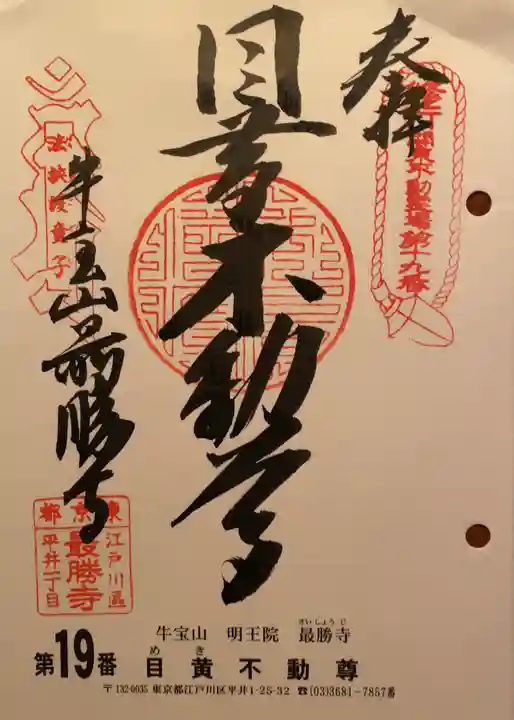 奉拝
関東三十六不動霊場第十九番
目黄不動尊
牛宝山最勝寺
東京都
江戸川區
最勝寺
平井一丁目
牛宝山 明王院 最勝寺
さいしょうじ
めき
第19番 目黄不動尊
〒132-0035 東京都江戸川区平井1-25-32 ☎(03)3681-7857番